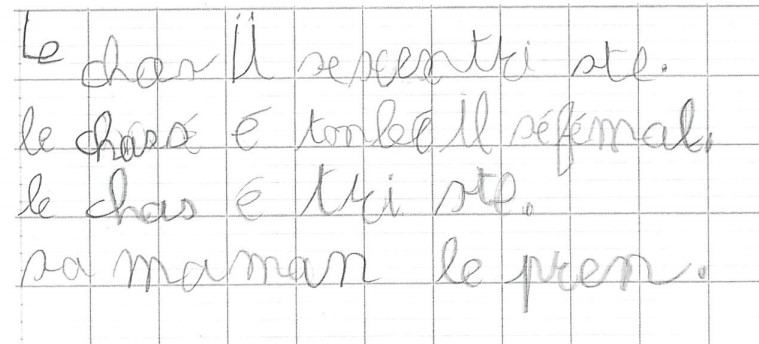 le char il sepcen tri ste.
le chas é tonbé il séfémal.
le chas é tri ste.
sa maman le pren.